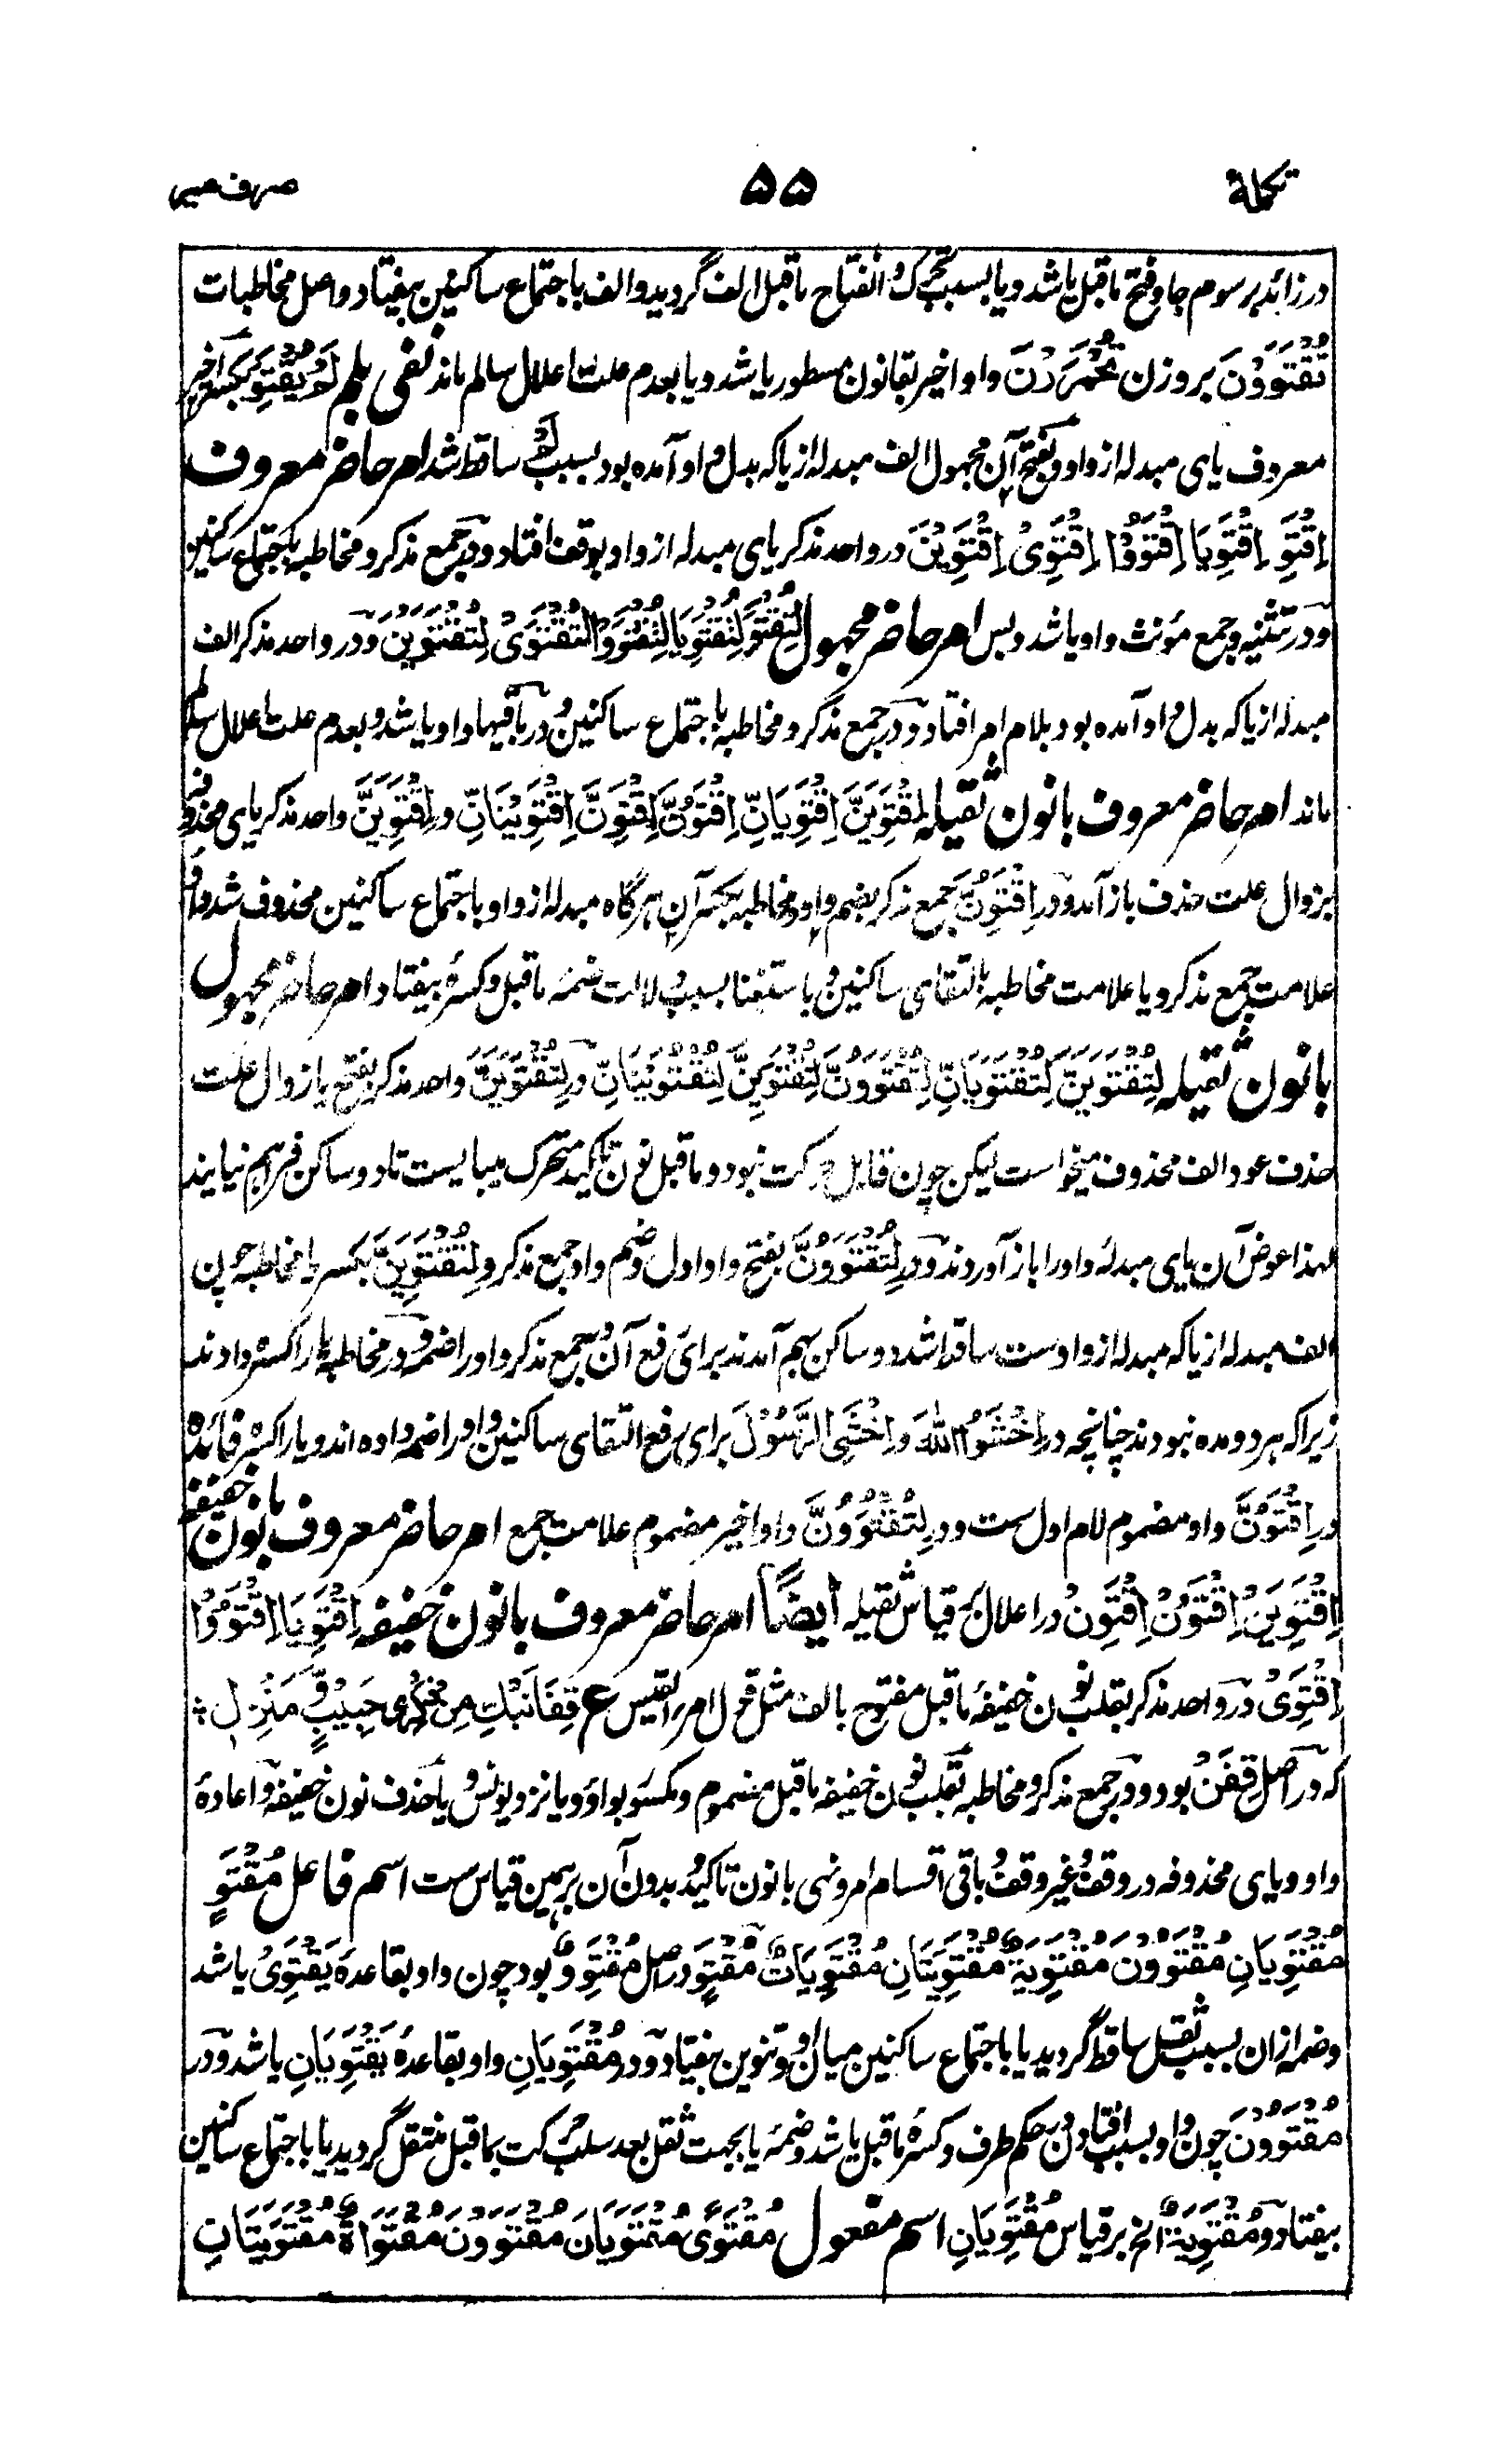 تکملة ۵۵ صرف میر
در زائد بر سوم جا و فتح ما قبل یا شد و یا بسبب تحرک و انفتاح ما قبل الف گردید و الف با جتماع ساکنین بیفتاد و اصل مخاطبات
تُقْتَوَوْنَ بر وزن تُحْمَرَرْنَ واو اخیر بقانون مسطور یا شد و یا بعدم علت اعلال سالم ماند نفی بلم لَمْ يَقْتَوِ بکسر اخیر
معروف یای مبدله از واو و بفتح آن مجهول الف مبدله از یا که بدل واو آمده بود بسبب لَمْ ساقط شد امر حاضر معروف
اِقْتَوِ اِقْتَوِیَا اِقْتَوُوْا اِقْتَوِیْ اِقْتَوِیْنَ در واحد مذکر یای مبدله از واو بوقف افتاد و در جمع مذکر و مخاطبه با جتماع ساکنین
و در تثنیه و جمع مؤنث واو یا شد و بس امر حاضر مجهول لِتُقْتَوَ لِتُقْتَوَیَا لِتُقْتَوَوْا لِتُقْتَوَیْ لِتُقْتَوَیْنَ و در واحد مذکر الف
مبدله از یا که بدل واو آمده بود بلام امر افتاد و در جمع مذکر و مخاطبه با جتماع ساکنین و در باقیها واو یا شد و بعدم علت اعلال سالم
ماند امر حاضر معروف بانون ثقیله اِقْتَوِیَنَّ اِقْتَوِیَانِّ اِقْتَوُنَّ اِقْتَوِنَّ اِقْتَوِیْنَانِّ در اِقْتَوِیَنَّ واحد مذکر یای محذوفه
بزوال علت حذف باز آمد و در اِقْتَوُنَّ جمع مذکر بضم واو و مخاطبه بکسر آن هرگاه مبدله از واو با جتماع ساکنین محذوف شد واو
علامت جمع مذکر و یا علامت مخاطبه بالتقای ساکنین و با ستغنا بسبب دلالت ضمه ما قبل و کسره بیفتاد امر حاضر مجهول
بانون ثقیله لِتُقْتَوَیَنَّ لِتُقْتَوَیَانِّ لِتُقْتَوَوُنَّ لِتُقْتَوَیِنَّ لِتُقْتَوَیْنَانِّ در لِتُقْتَوَیَنَّ واحد مذکر بفتح یا زوال علت
حذف عود الف محذوف میخواست لیکن چون قابل حرکت نبود و ما قبل نون تاکید متحرک میبایست تا دو ساکن فراهم نیایند
لهذا عوض آن یای مبدلهٔ واو را باز آوردند و در لِتُقْتَوَوُنَّ بفتح واو اول و ضم واو جمع مذکر و لِتُقْتَوَیِنَّ بکسر یا مخاطبه چون
الف مبدله از یا که مبدله از واو ست ساقط شد دو ساکن بهم آمدند برای رفع آن در جمع مذکر واو را ضمه و در مخاطبه یا را کسره دادند
زیرا که هر دو مده نبودند چنانچه در اِخْشَوُا اللّٰهَ و اِخْشَیِ الرَّسُوْلَ برای رفع التقای ساکنین واو را ضمه داده اند و یا را کسره فائده
در اِقْتَوُنَّ واو مضموم لام اول ست و در لِتُقْتَوَوُنَّ واو اخیر مضموم علامت جمع امر حاضر معروف بانون خفیفه
اِقْتَوِیَنْ اِقْتَوُنْ اِقْتَوِنْ در اعلال بر قیاس ثقیله ایضًا امر حاضر معروف بانون خفیفه اِقْتَوِیَا اِقْتَوُوْا
اِقْتَوِیْ در واحد مذکر بقلب نون خفیفهٔ ما قبل مفتوح بالف مثل قول امرء القیس ع قِفَانَبْكِ مِنْ ذِكْرٰى حَبِيْبٍ وَّ مَنْزِلٖ
که در اصل قِفَنْ بود و در جمع مذکر و مخاطبه بقلب نون خفیفه ما قبل مضموم و مکسور بواو و یا نزد یونس و یا حذف نون خفیفه و اعادهٔ
واو و یای محذوفه در وقف و غیر وقف و باقی اقسام امر و نهی بانون تاکید و بدون آن بر همین قیاس ست اسم فاعل مُقْتَوٍ
مُقْتَوِیَانِ مُقْتَوُوْنَ مُقْتَوِیَةٌ مُقْتَوِیَتَانِ مُقْتَوِیَاتٌ مُقْتَوٍ در اصل مُقْتَوِوٌ بود چون واو بقاعدهٔ یَقْتَوِیْ یا شد
و ضمه از ان بسبب ثقل ساقط گردید یا با جتماع ساکنین میان او و تنوین بیفتاد و در مُقْتَوِیَانِ واو بقاعدهٔ یَقْتَوِیَانِ یا شد و در
مُقْتَوُوْنَ چون واو بسبب افتادن در حکم طرف و کسرهٔ ما قبل یا شد و ضمهٔ یا بجهت ثقل بعد سلب حرکت بما قبل منتقل گردید یا با جتماع ساکنین
بیفتاد و مُقْتَوِیَةٌ الخ بر قیاس مُقْتَوِیَانِ اسم مفعول مُقْتَوًى مُقْتَوَیَانِ مُقْتَوَوْنَ مُقْتَوَاةٌ مُقْتَوَیَتَانِ